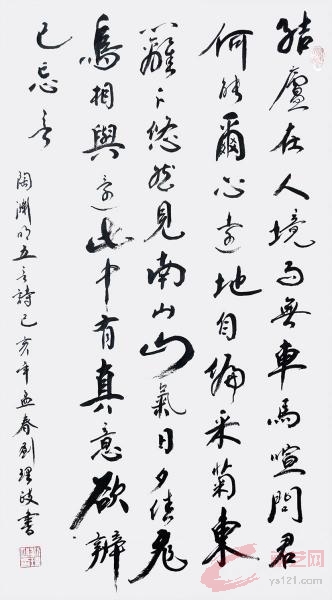 結廬在人境而無車馬喧問君
何能爾心遠地自偏采菊東
籬下悠然見南山山氣日夕佳飛
鳥相與還此中有真意欲辨
已忘言
陶淵明五言詩己亥年孟春劉理書
艺网
ys121.com